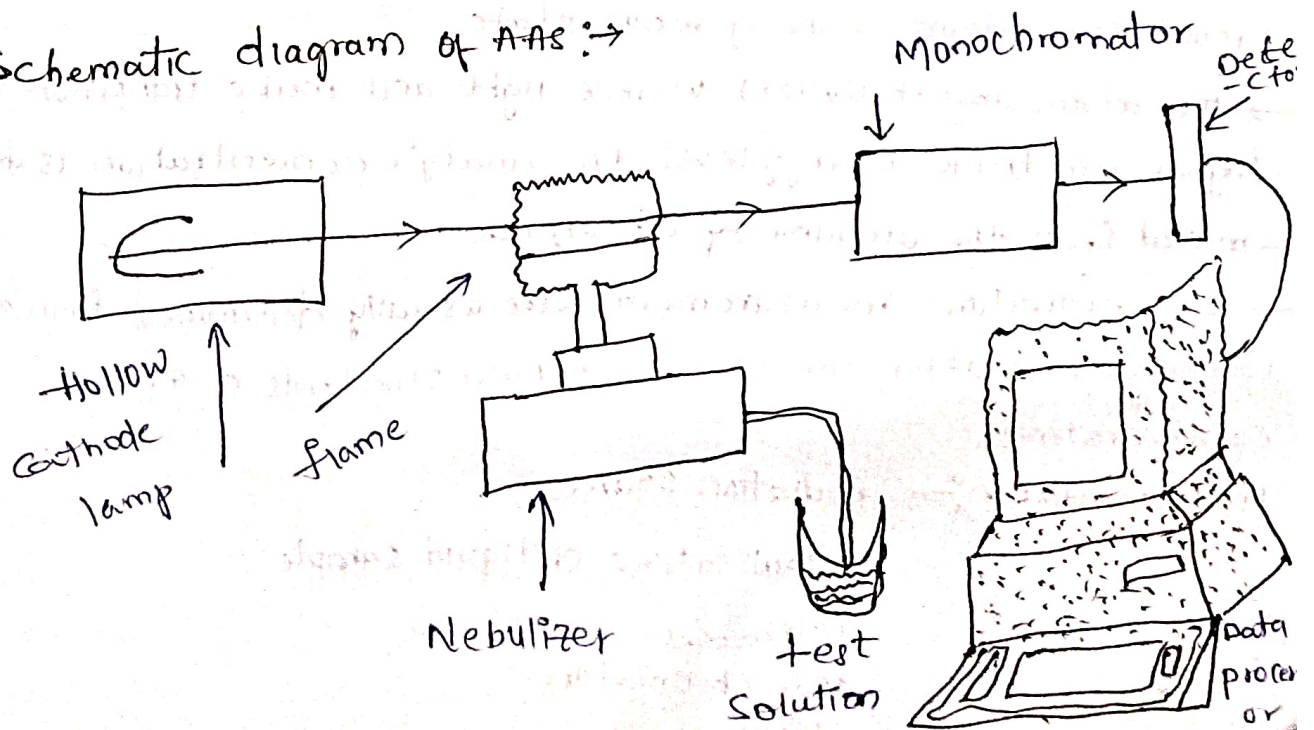 Schematic diagram of AAS :→
Monochromator
Dete
-ctor
Hollow
Cathode
lamp
flame
Nebulizer
test
Solution
Data
process
or